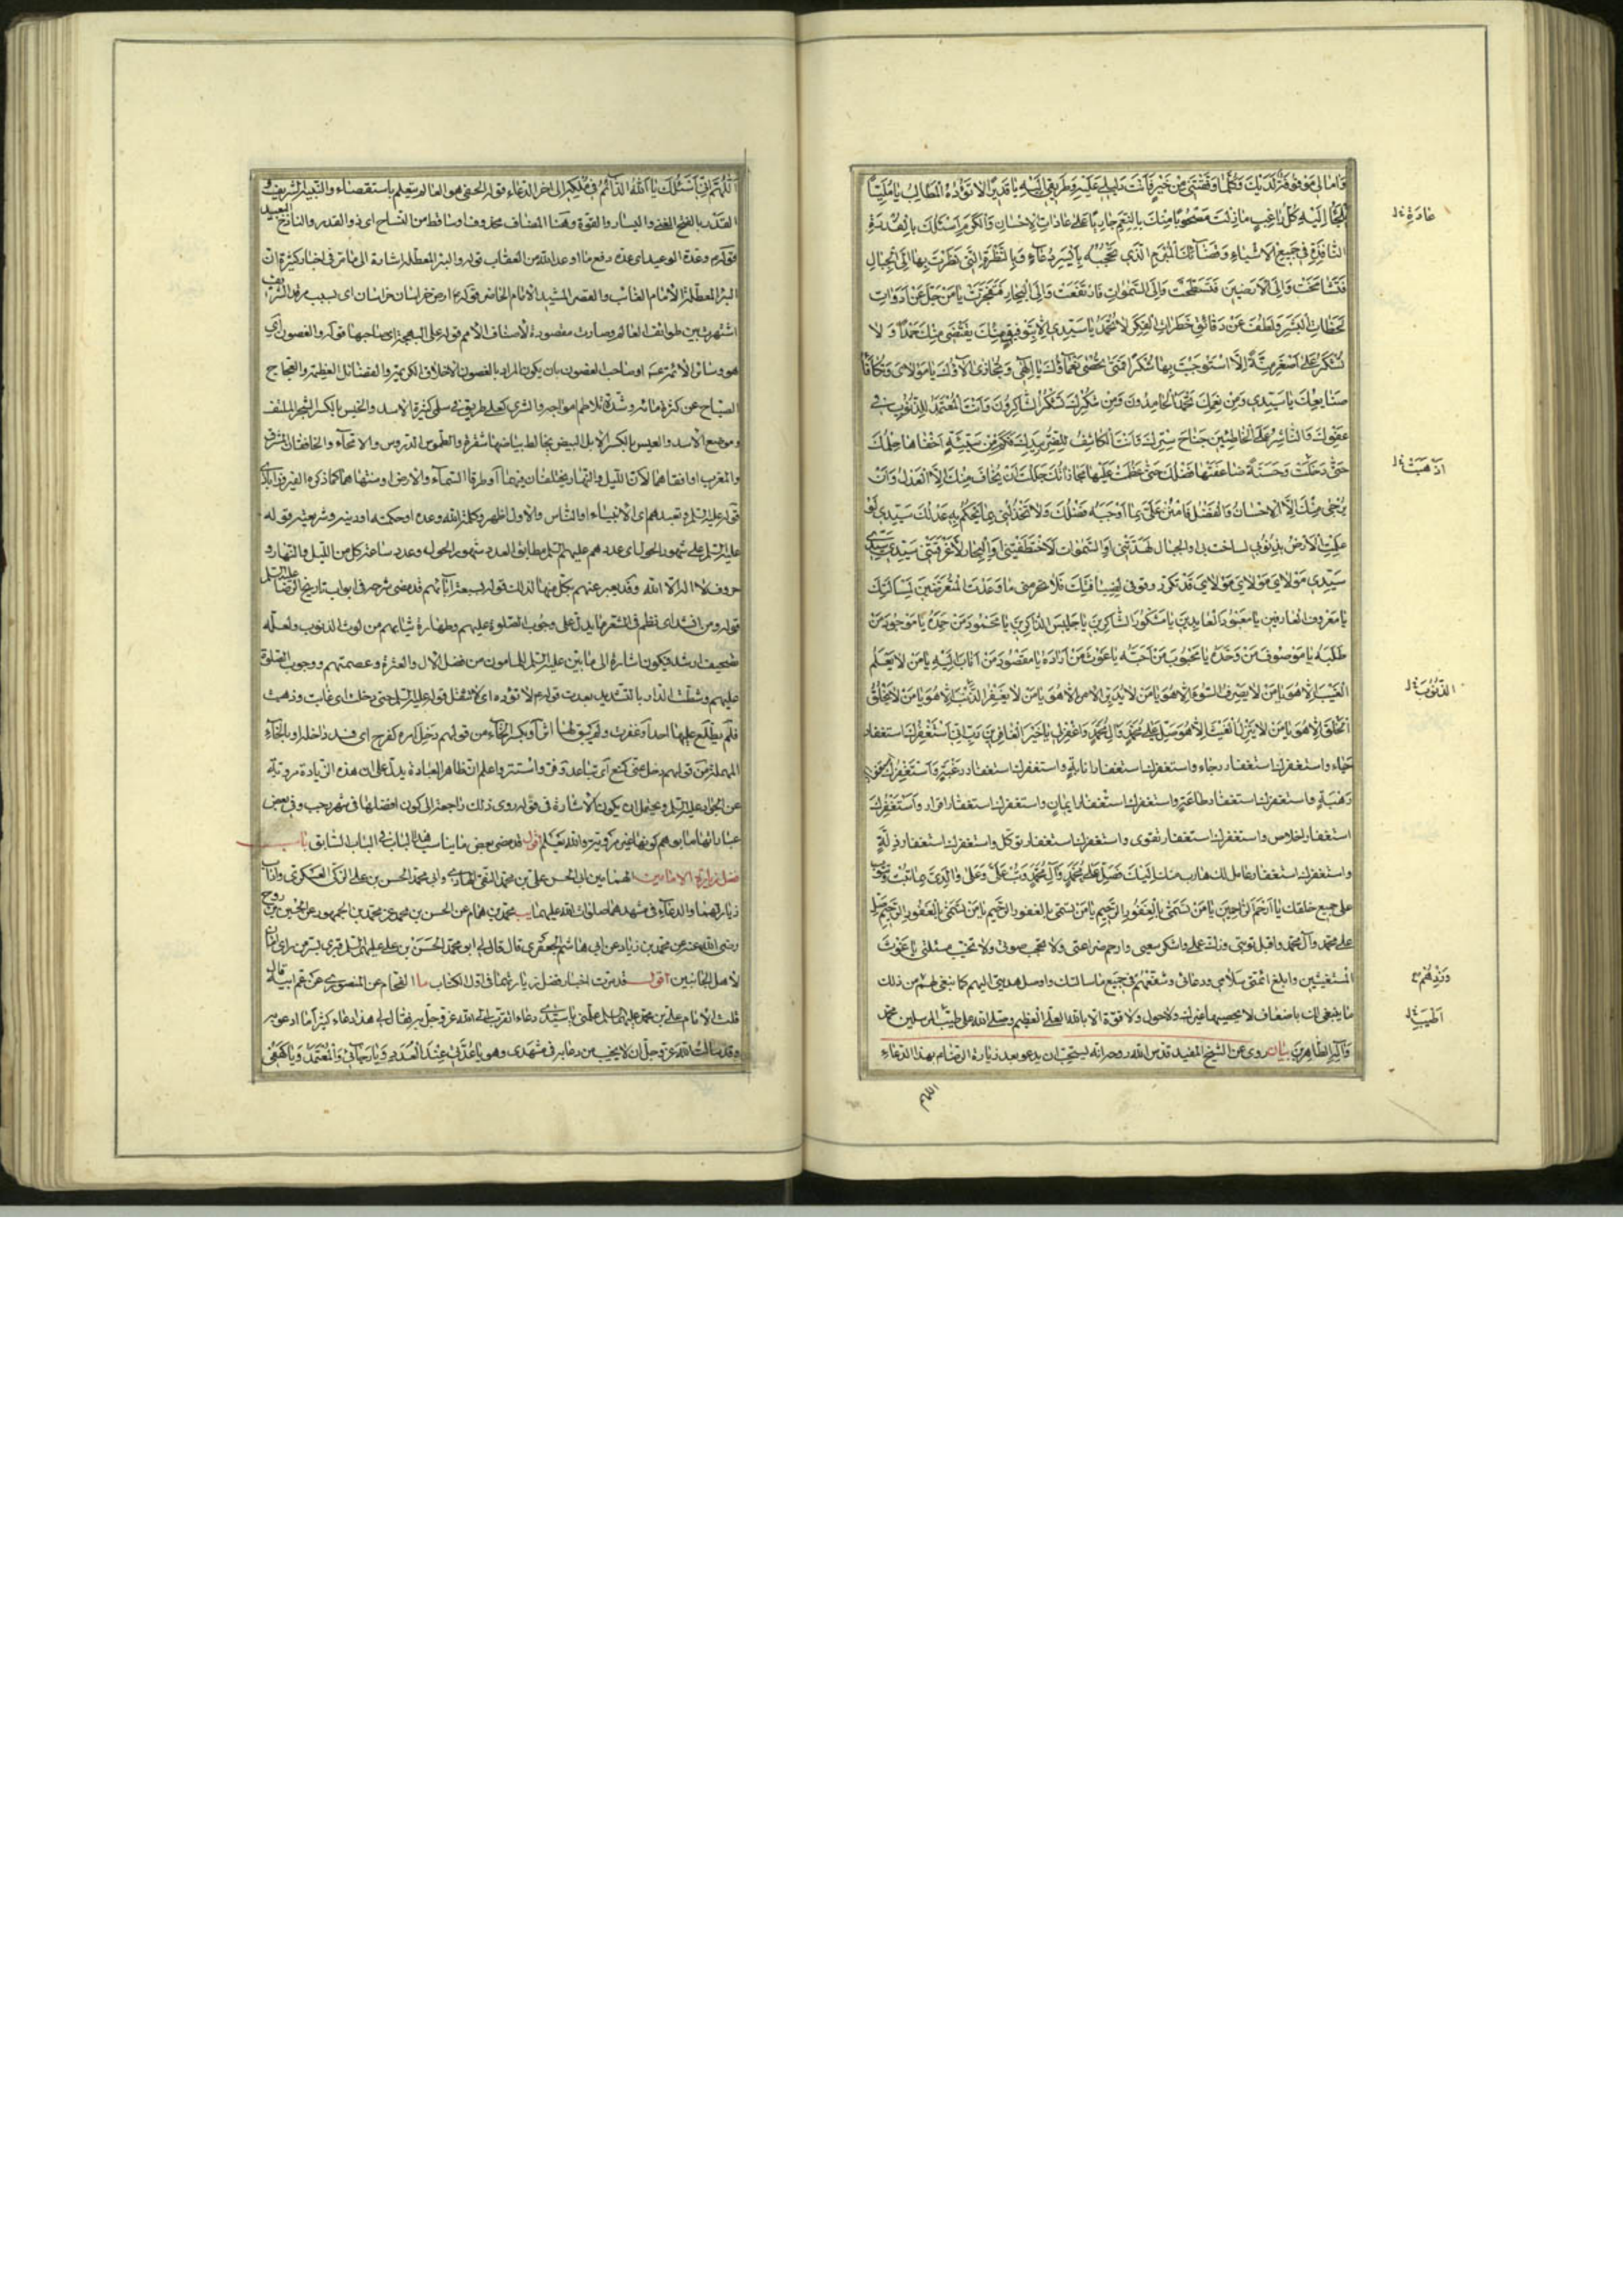 وَآمالي مَوْقُوفَةٌ لَدَيْكَ وَكُلَّما وَفَّقْتَني مِنْ خَيْرٍ فَأَنْتَ دَليلي عَلَيْهِ وَطَريقي إلَيْهِ يا قَديراً لا تَؤُدُهُ المَطالِبُ يا مَلِيّاً
يَلْجَأُ إلَيْهِ كُلُّ راغِبٍ مازِلْتَ مَصْحُوباً مِنْكَ بِالنِّعَمِ جارِياً عَلى عاداتِ الإحْسانِ وَالْكَرَمِ أسْئَلُكَ بِالْقُدْرَةِ
النّافِذَةِ في جَميعِ الأشْياءِ وَقَضائِكَ المُبْرَمِ الَّذي تَحْجُبُهُ بِأيْسَرِ الدُّعاءِ وَبِالنَّظْرَةِ الَّتي نَظَرْتَ بِها إلَى الْجِبالِ
فَتَشامَخَتْ وَإلَى الأرَضينَ فَتَسَطَّحَتْ وَإلَى السَّمواتِ فَارْتَفَعَتْ وَإلَى الْبِحارِ فَتَفَجَّرَتْ يا مَنْ جَلَّ عَنْ أدَواتِ
لَحَظاتِ الْبَشَرِ وَلَطُفَ عَنْ دَقائِقِ خَطَراتِ الفِكَرِ لا تُحْمَدُ يا سَيِّدي إلّا بِتَوْفيقٍ مِنْكَ يَقْتَضي مِنْكَ حَمْداً وَلا
تُشْكَرُ عَلى أصْغَرِ مِنَّةٍ إلَّا اسْتَوْجَبْتَ بِها شُكْراً فَمَتى تُحْصى نَعْماؤُكَ يا إلهي وَتُجازى آلاؤُكَ يا مَوْلايَ وَتُكافَأُ
صَنايِعُكَ يا سَيِّدي وَمِنْ نِعَمِكَ يَحْمَدُ الْحامِدُونَ وَمِنْ شُكْرِكَ يَشْكُرُ الشّاكِرُونَ وَأنْتَ المُعْتَمَدُ لِلذُّنُوبِ في
عَفْوِكَ وَالنّاشِرُ عَلَى الْخاطِئينَ جَناحَ سِتْرِكَ وَأنْتَ الْكاشِفُ لِلضُّرِّ بِيَدِكَ فَكَمْ مِنْ سَيِّئَةٍ أخْفاها حِلْمُكَ
حَتّى دَخَلَتْ وَحَسَنَةٍ ضاعَفَها فَضْلُكَ حَتّى عَظُمَتْ عَلَيْها مُجازاتُكَ جَلَلْتَ أنْ يُخافَ مِنْكَ إلَّا الْعَدْلُ وَأنْ
يُرْجى مِنْكَ إلَّا الإحْسانُ وَالْفَضْلُ فَامْنُنْ عَلَيَّ بِما أوْجَبَهُ فَضْلُكَ وَلا تَخْذُلْني بِما يَحْكُمُ بِهِ عَدْلُكَ سَيِّدي لَوْ
عَلِمَتِ الأرْضُ بِذُنُوبي لَساخَتْ بي أوِ الْجِبالُ لَهَدَّتْني أوِ السَّمواتُ لَاخْتَطَفَتْني أوِ الْبِحارُ لَأغْرَقَتْني سَيِّدي سَيِّدي
سَيِّدي مَوْلايَ مَوْلايَ مَوْلايَ قَدْ تَكَرَّرَ وُقُوفي لِضِيافَتِكَ فَلا تَحْرِمْني ما وَعَدْتَ المُتَعَرِّضينَ لِمَسْئَلَتِكَ
يا مَعْرُوفَ الْعارِفينَ يا مَعْبُودَ الْعابِدينَ يا مَشْكُورَ الشّاكِرينَ يا جَليسَ الذّاكِرينَ يا مَحْمُودَ مَنْ حَمِدَهُ يا مَوْجُودَ مَنْ
طَلَبَهُ يا مَوْصُوفَ مَنْ وَحَّدَهُ يا مَحْبُوبَ مَنْ أحَبَّهُ يا غَوْثَ مَنْ أرادَهُ يا مَقْصُودَ مَنْ أنابَ إلَيْهِ يا مَنْ لا يَعْلَمُ
الْغَيْبَ إلّا هُوَ يا مَنْ لا يَصْرِفُ السُّوءَ إلّا هُوَ يا مَنْ لا يُدَبِّرُ الأمْرَ إلّا هُوَ يا مَنْ لا يَغْفِرُ الذَّنْبَ إلّا هُوَ يا مَنْ لا يَخْلُقُ
الْخَلْقَ إلّا هُوَ يا مَنْ لا يُنَزِّلُ الْغَيْثَ إلّا هُوَ صَلِّ عَلى مُحَمَّدٍ وَآلِ مُحَمَّدٍ وَاغْفِرْ لي يا خَيْرَ الْغافِرينَ رَبِّ إنّي أسْتَغْفِرُكَ استغفار
حَياء واستغفرك استغفار رجاء واستغفرك استغفار انابة واستغفرك استغفار رغبة وأستغفرك استغفار
رَهْبَة واستغفرك استغفار طاعة واستغفرك استغفار ايمان واستغفرك استغفار اقرار وأستغفرك
استغفار اخلاص واستغفرك استغفار تقوى واستغفرك استغفار توكل واستغفرك استغفار ذلة
واستغفرك استغفار عامل لك هارب منك إليك فصل على محمد وآل محمد وتب علي وعلى والدي بما تبت وتتوب
على جميع خلقك يا أرحم الراحمين يا من تسمى بالغفور الرحيم يا من تسمى بالغفور الرحيم يا من تسمى بالغفور الرحيم صل
على محمد وآل محمد واقبل توبتي وزك عملي واشكر سعيي وارحم ضراعتي ولا تحجب صوتي ولا تخيب مسئلتي يا غوث
المستغيثين وابلغ ائمتي سلامي ودعائي وشفعهم في جميع ما سالتك واوصل هديتي اليهم كما ينبغي لهم من ذلك
ما ينبغي لك باضعاف لا يحصيها غيرك ولا حول ولا قوة الا بالله العلي العظيم وصلى الله على طيب المرسلين محمد
وآله الطاهرين بيان روى عن الشيخ المفيد قدس الله روحه انه يستحب ان يدعو بعد زيارة الرضا بهذا الدعاء
اللهم
عادة
اذهبت
الذنوب
وزدهم
اطيب
اللهم إني أسئلك يا الله الدائم في ملكه إلى اخر الدعاء قوله الحفي هو العالم يتعلم باستقصاء والنبيل الشريف و
القدر بالفتح الغنى واليسار والقوة وهنا المضاف محذوف أو ساقط من النساخ اي ذو القدر والنازح البعيد
قوله وعدة الوعيد اي عده دفع ما اوعد الله من العقاب قوله والبئر المعطلة اشارة الى ما مر في اخبار كثيرة ان
البئر المعطلة الامام الغائب والقصر المشيد الامام الحاضر قوله ارض خراسان خراسان اي بسبب مرقد الشريف
اشتهرت بين طوائف العالم وصارت مقصودة لاصناف الامم قوله على البهجة اي صاحبها قوله والغصون اي
هو وسائر الأئمة ع او صاحب الغصون بان يكون المراد بالغصون الاخلاق الكريمة والفضائل العظيمة والعجاج
الصياح عن كثرة مائه وشدة تلاطم امواجه والشرى كعلى طريق في سلمى كثيرة الاسد والخيس بالكسر الشجر الملتف
وموضع الاسد والعيس بالكسر الابل البيض يخالط بياضها شقرة والطموس الدروس والامحاء والخافقان المشرق
والمغرب او افقاهما لان الليل والنهار يختلفان فيهما او طرفا السماء والارض او منتهاهما كما ذكره الفيروزابادي
قوله عليه السلم وتعبدهم اي الانبياء او الناس والاول اظهر وكلمة الله وعده او حكمته او دينه وشريعته قوله
عليه السلم على شهور الحول اي عددهم عليهم السلم مطابق العدد شهور الحول وعدد ساعة كل من الليل والنهار و
حروف لا اله الا الله وقد يعبر عنهم بكل منها لذلك قوله لسبعة اناثهم قد مضى شرحه في ابواب تاريخ الرضا عليه السلم
قوله ومن انشد اي نظم في الشعر ما يدل على وجوب الصلوة عليهم وطهارة ثيابهم من لوث الذنوب ولعله
تصحيف ارشد فيكون اشارة الى ما بين عليه السلم للمامون من فضل الآل والعترة وعصمتهم ووجوب الصلوة
عليهم وشطت الدار بالتشديد بعدت قوله لا تؤده اي لا تثقل قوله عليه السلم حتى دخلت اي غابت وذهبت
فلم يطلع عليها احد او غفرت ولم يبق لها اثر او بكسر الخاء من قولهم دخل امره كفرح اي فسد داخله او بالحاء
المهملة من قولهم دحل عني كمنع اي تباعد او فر واستتر واعلم ان ظاهر العبارة يدل على ان هذه الزيادة مروية
عن الجواد عليه السلم ويحتمل ان يكون الاشارة في قوله روى ذلك راجعة الى كون افضلها في شهر رجب وفي بعض
عباراتها ما يوهم كونها غير مروية والله يعلم اقول قد مضى بعض ما يناسب هذا الباب في الباب السابق باب
فضل زيارة الامامين الهمامين ابي الحسن علي بن محمد النقي الهادي وابي محمد الحسن بن علي الزكي العسكري وآداب
زيارتهما والدعاء في مشهدهما صلوات الله عليهما يب محمد بن همام عن الحسن بن محمد عن محمد بن الجمهور عن الحسين بن روح
رضي الله عنه عن محمد بن زياد عن ابي هاشم الجعفري قال قال لي ابو محمد الحسن بن علي عليهما السلم قبري بسر من راى امان
لاهل الجانبين اقول قد مرت اخبار فضل زيارتهما في اول الكتاب ما الفحام عن المنصوري عن عم ابيه قال
قلت للامام علي بن محمد عليهما السلم علمني يا سيدي دعاء اتقرب الى الله عز وجل به فقال لي هذا دعاء كثيرا ما ادعو به
وقد سالت الله عز وجل ان لا يخيب من دعا به في مشهدي وهو يا عدتي عند العدد ويا رجائي والمعتمد ويا كهفي